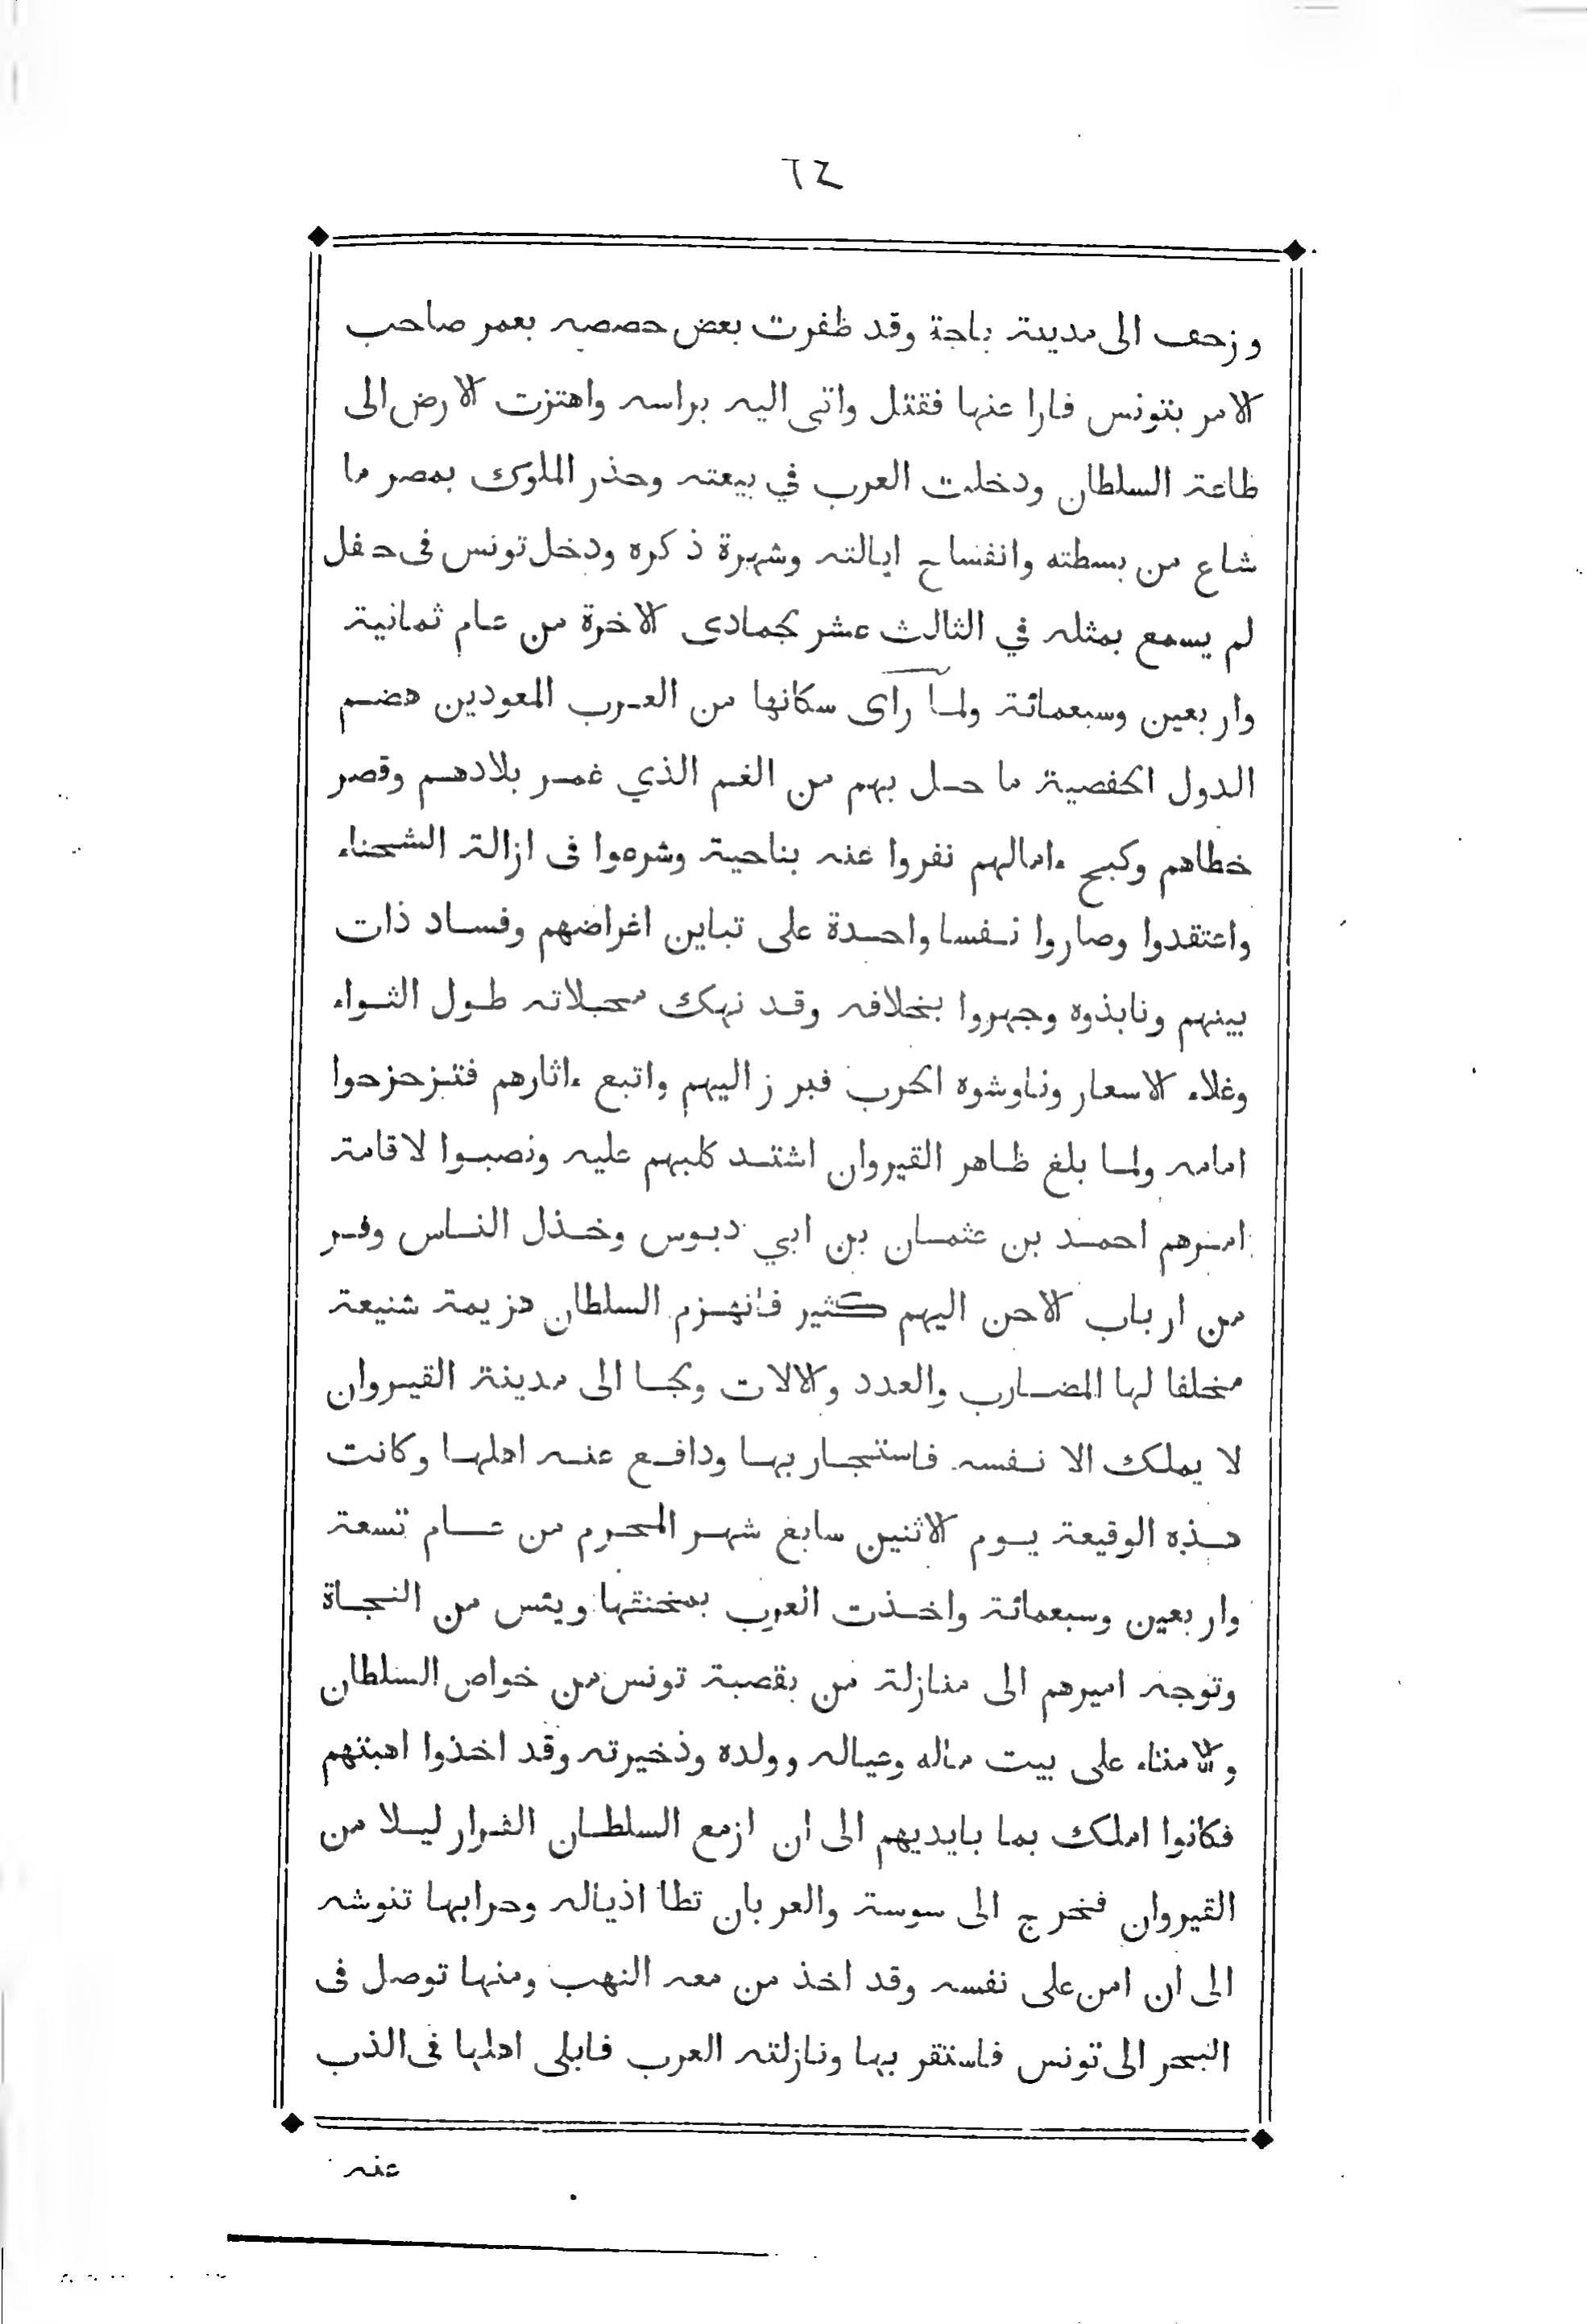 ٦٤
وزحف الى مدينة باجة وقد ظفرت بعض حصصه بعمر صاحب
الامر بتونس فارا عنها فقتل واتى اليه براسه واهتزت الارض الى
طاعة السلطان ودخلت العرب في بيعته وحذر الملوك بمصر ما
شاع من بسطته وانفساح ايالته وشهرة ذكره ودخل تونس فى حفل
لم يسمع بمثله في الثالث عشر لجمادى الاخرة من عام ثمانية
واربعين وسبعمائة ولمآ رأى سكانها من العرب المعودين هضم
الدول الحفصية ما حل بهم من الغم الذي غمر بلادهم وقصر
خطاهم وكبح ءامالهم نفروا عنه بناحية وشرعوا فى ازالة الشحناء
واعتقدوا وصاروا نفسا واحدة على تباين اغراضهم وفساد ذات
بينهم ونابذوه وجهروا بخلافه وقد نهك محلاته طول الثواء
وغلاء الاسعار وناوشوه الحرب فبرز اليهم واتبع ءاثارهم فتزحزحوا
امامه ولما بلغ ظاهر القيروان اشتد كلبهم عليه ونصبوا لاقامة
امرهم احمد بن عثمان بن ابي دبوس وخذل الناس وفر
من ارباب الاحن اليهم كثير فانهزم السلطان هزيمة شنيعة
مخلفا لها المضارب والعدد والالات ولجا الى مدينة القيروان
لا يملك الا نفسه فاستجار بها ودافع عنه اهلها وكانت
هذه الوقيعة يوم الاثنين سابع شهر المحرم من عام تسعة
واربعين وسبعمائة واخذت العرب بمخنقها ويئس من النجاة
وتوجه اميرهم الى منازلة من بقصبة تونس من خواص السلطان
والامناء على بيت ماله وعياله وولده وذخيرته وقد اخذوا اهبتهم
فكانوا املك بما بايديهم الى ان ازمع السلطان الفرار ليلا من
القيروان فخرج الى سوسة والعربان تطا اذياله وحرابها تنوشه
الى ان امن على نفسه وقد اخذ من معه النهب ومنها توصل فى
البحر الى تونس فاستقر بها ونازلته العرب فابلى اهلها فى الذب
عنه